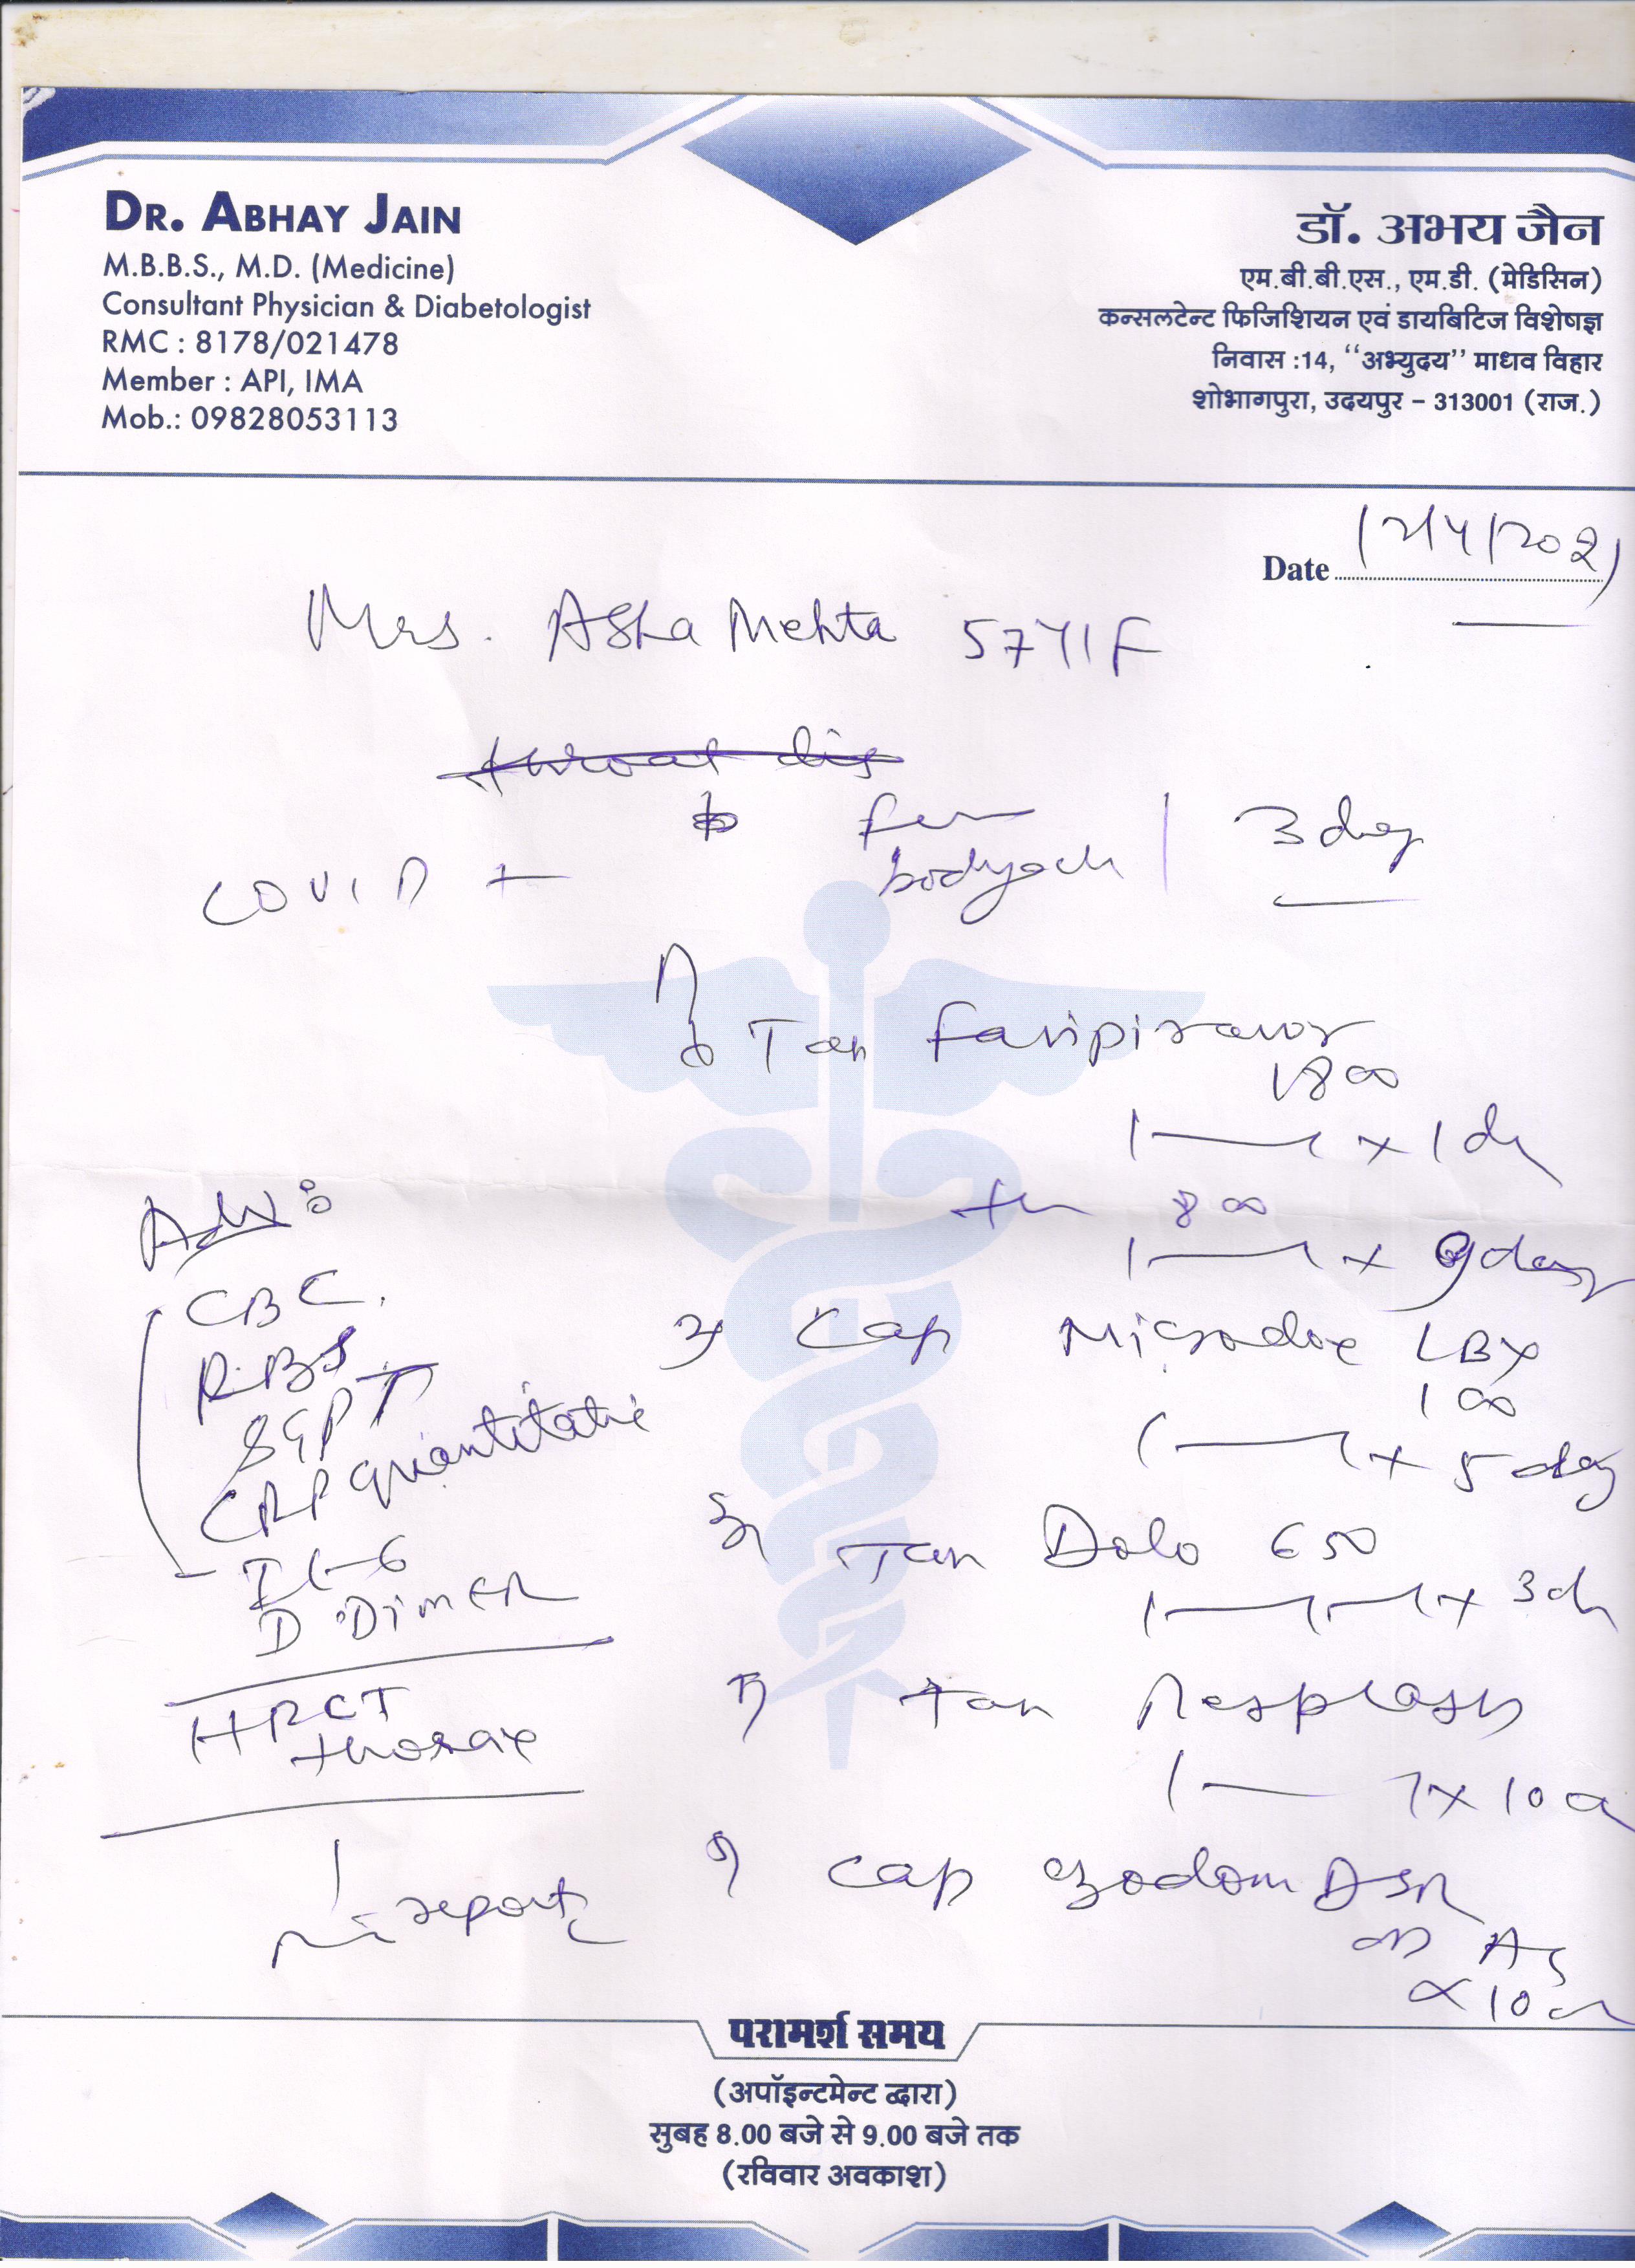 DR. ABHAY JAIN
M.B.B.S., M.D. (Medicine)
Consultant Physician & Diabetologist
RMC : 8178/021478
Member : API, IMA
Mob.: 09828053113
डॉ. अभय जैन
एम.बी.बी.एस., एम.डी. (मेडिसिन)
कन्सलटेन्ट फिजिशियन एवं डायबिटिज विशेषज्ञ
निवास :14, ‘‘अभ्युदय’’ माधव विहार
शोभागपुरा, उदयपुर – 313001 (राज.)
Date 12/4/2021
Mrs. Asha Mehta 57Y/F
throat dis
COVID +
bodyach
3 day
Tab Favipiravir
1800
1 — 1 x 1 d
800
1 — 1 x 9 days
Cap Microdox LBX
100
1 — 1 x 5 day
Tab Dolo 650
1 — 1 — 1 x 3 d
Tab
1 — 1 x 10 d
Cap DSR
x 10 d
Adv:
CBC.
RBS
SGPT
CRP quantitative
IL-6
D Dimer
HRCT
thorax
report
परामर्श समय
(अपॉइन्टमेन्ट द्वारा)
सुबह 8.00 बजे से 9.00 बजे तक
(रविवार अवकाश)